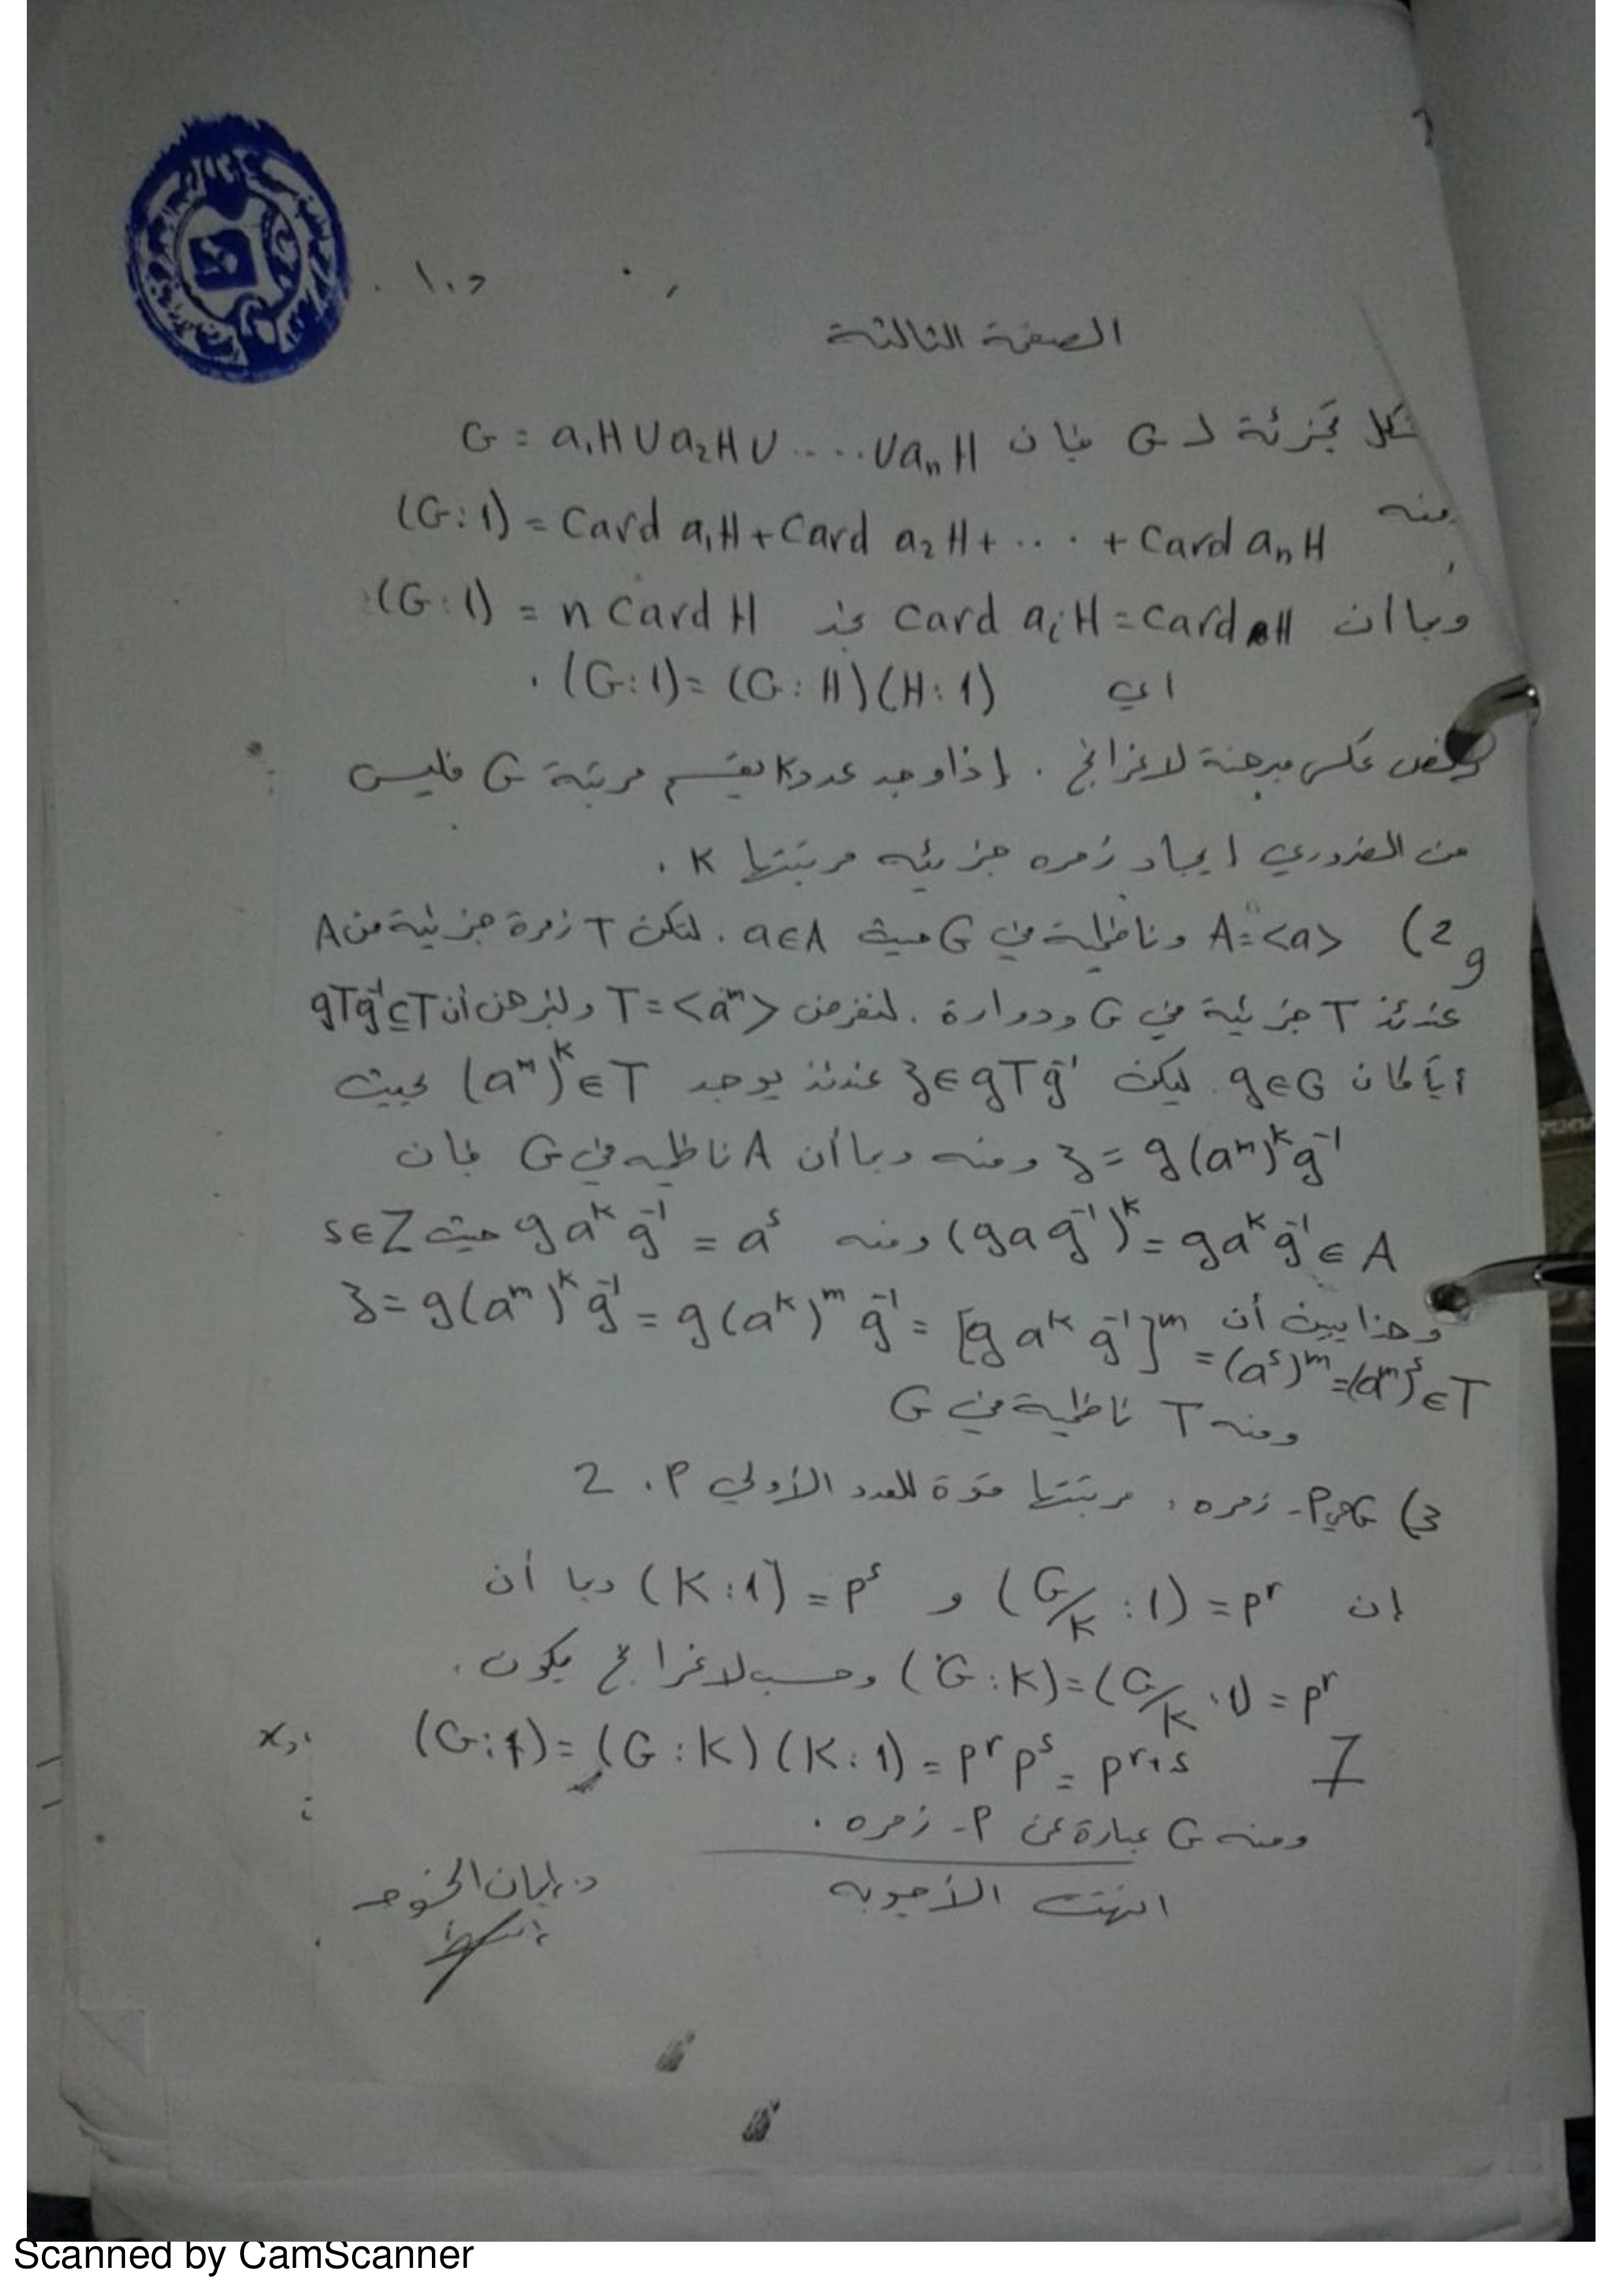 الصفحة الثالثة
تشكل تجزئة لـ G فإن G = a₁H ∪ a₂H ∪ .... ∪ aₙH
ومنه (G:1) = Card a₁H + Card a₂H + ... + Card aₙH
وبما أن Card aᵢH = Card H نجد (G:1) = n Card H
اي (G:1) = (G:H)(H:1) .
عكس مبرهنة لاغرانج . إذا وجد عدد K يقسم مرتبة G فليس
من الضروري ايجاد زمره جزئيه مرتبتها K .
2) A = <a> وناظمية في G حيث a∈A . لتكن T زمرة جزئية من A
9
عندئذ T جزئية في G ودوارة . لنفرض T = <aᵐ> ولنبرهن أن gTg⁻¹ ⊆ T
أياً كان g∈G . ليكن ʒ ∈ gTg⁻¹ عندئذ يوجد (aᵐ)ᵏ ∈ T بحيث
ʒ = g(aᵐ)ᵏg⁻¹ ومنه وبما أن A ناظميه في G فإن
(gag⁻¹)ᵏ = gaᵏg⁻¹ ∈ A ومنه gaᵏg⁻¹ = aˢ حيث s∈Z
وهذا يبين أن ʒ = g(aᵐ)ᵏg⁻¹ = g(aᵏ)ᵐg⁻¹ = [g aᵏ g⁻¹]ᵐ
= (aˢ)ᵐ = (aᵐ)ˢ ∈ T
ومنه T ناظمية في G
3) G هي P- زمره ، مرتبتها قوة للعدد الأولي P . 2
إن (G/K : 1) = pʳ و (K:1) = pˢ وبما أن
(G:K) = (G/K : 1) = pʳ وحسب لاغرانج يكون .
7 (G:1) = (G:K)(K:1) = pʳpˢ = pʳ⁺ˢ
ومنه G عبارة عن P- زمره .
انتهت الأجوبه
د. إيمان الخوجه
Scanned by CamScanner